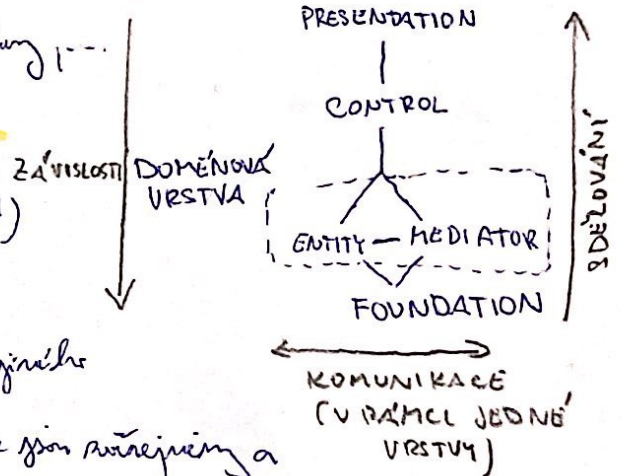 PRESENTATION
CONTROL
ZÁVISLOSTI
DOMÉNOVÁ
VRSTVA
ENTITY — MEDIATOR
FOUNDATION
SDĚLOVÁNÍ
KOMUNIKACE
(V RÁMCI JEDNÉ
VRSTVY)
a